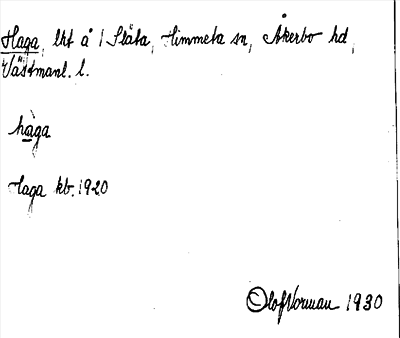 Haga, lht å 1 Slåta, Himmeta sn, Åkerbo hd,
Västmanl. l.
haga
Haga kb. 1920
Olof Norman 1930